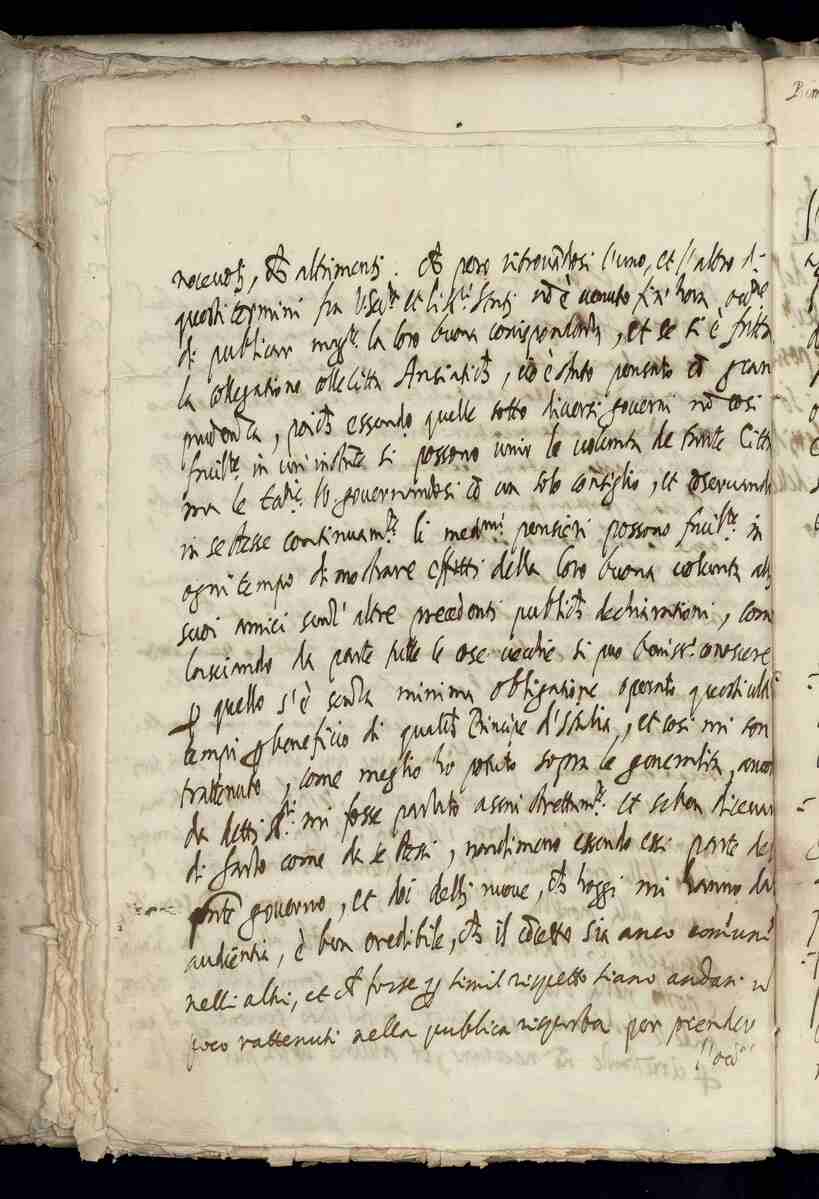 nocevoli, ch'altrimenti. Ch però ritrovãdosi l'uno, et l'altro di
questi termini fra V. Ser.tà et li nõ è venuto fin'hora occ.ne
di publicar magg.te la loro buona corrispondenza, et se si è fatta
la collegatione colle Città Anseatich, ciò è stato pensato cõ gran
prudenza, poich essendo quelle sotto diversi governi nõ così
facil.te in un' instãte si possono unir le volontà de tante Città
ma le governandosi cõ un solo consiglio, et cõservando
in se stesse continuam.te li med.mi pensieri possono facil.te in
ogni tempo dimostrare effetti della loro buona volontà alli
suoi amici senz' altre precedenti publich dechiarationi, come
lasciando da parte tutte le cose vecchie si può beniss.o conoscere
p quello s'è senza minima obligatione operato questi ulti
tempi p beneficio di qualch Principe d'Italia, et così mi son
trattenuto, come meglio ho potuto sopra le generalità, ancor
da detti ss.ri mi fosse parlato assai direttam.te et se ben dicevan
di farlo come da se stessi, nondimeno essendo essi parte del
pñte governo, et doi delli nuove, ch hoggi mi hanno da
audientia, è ben credibile, ch il cõcetto sia anco comun
nelli altri, et ch forse p simil rispetto siano andati u
poco rattenuti nella publica risposta per prender
l'occ